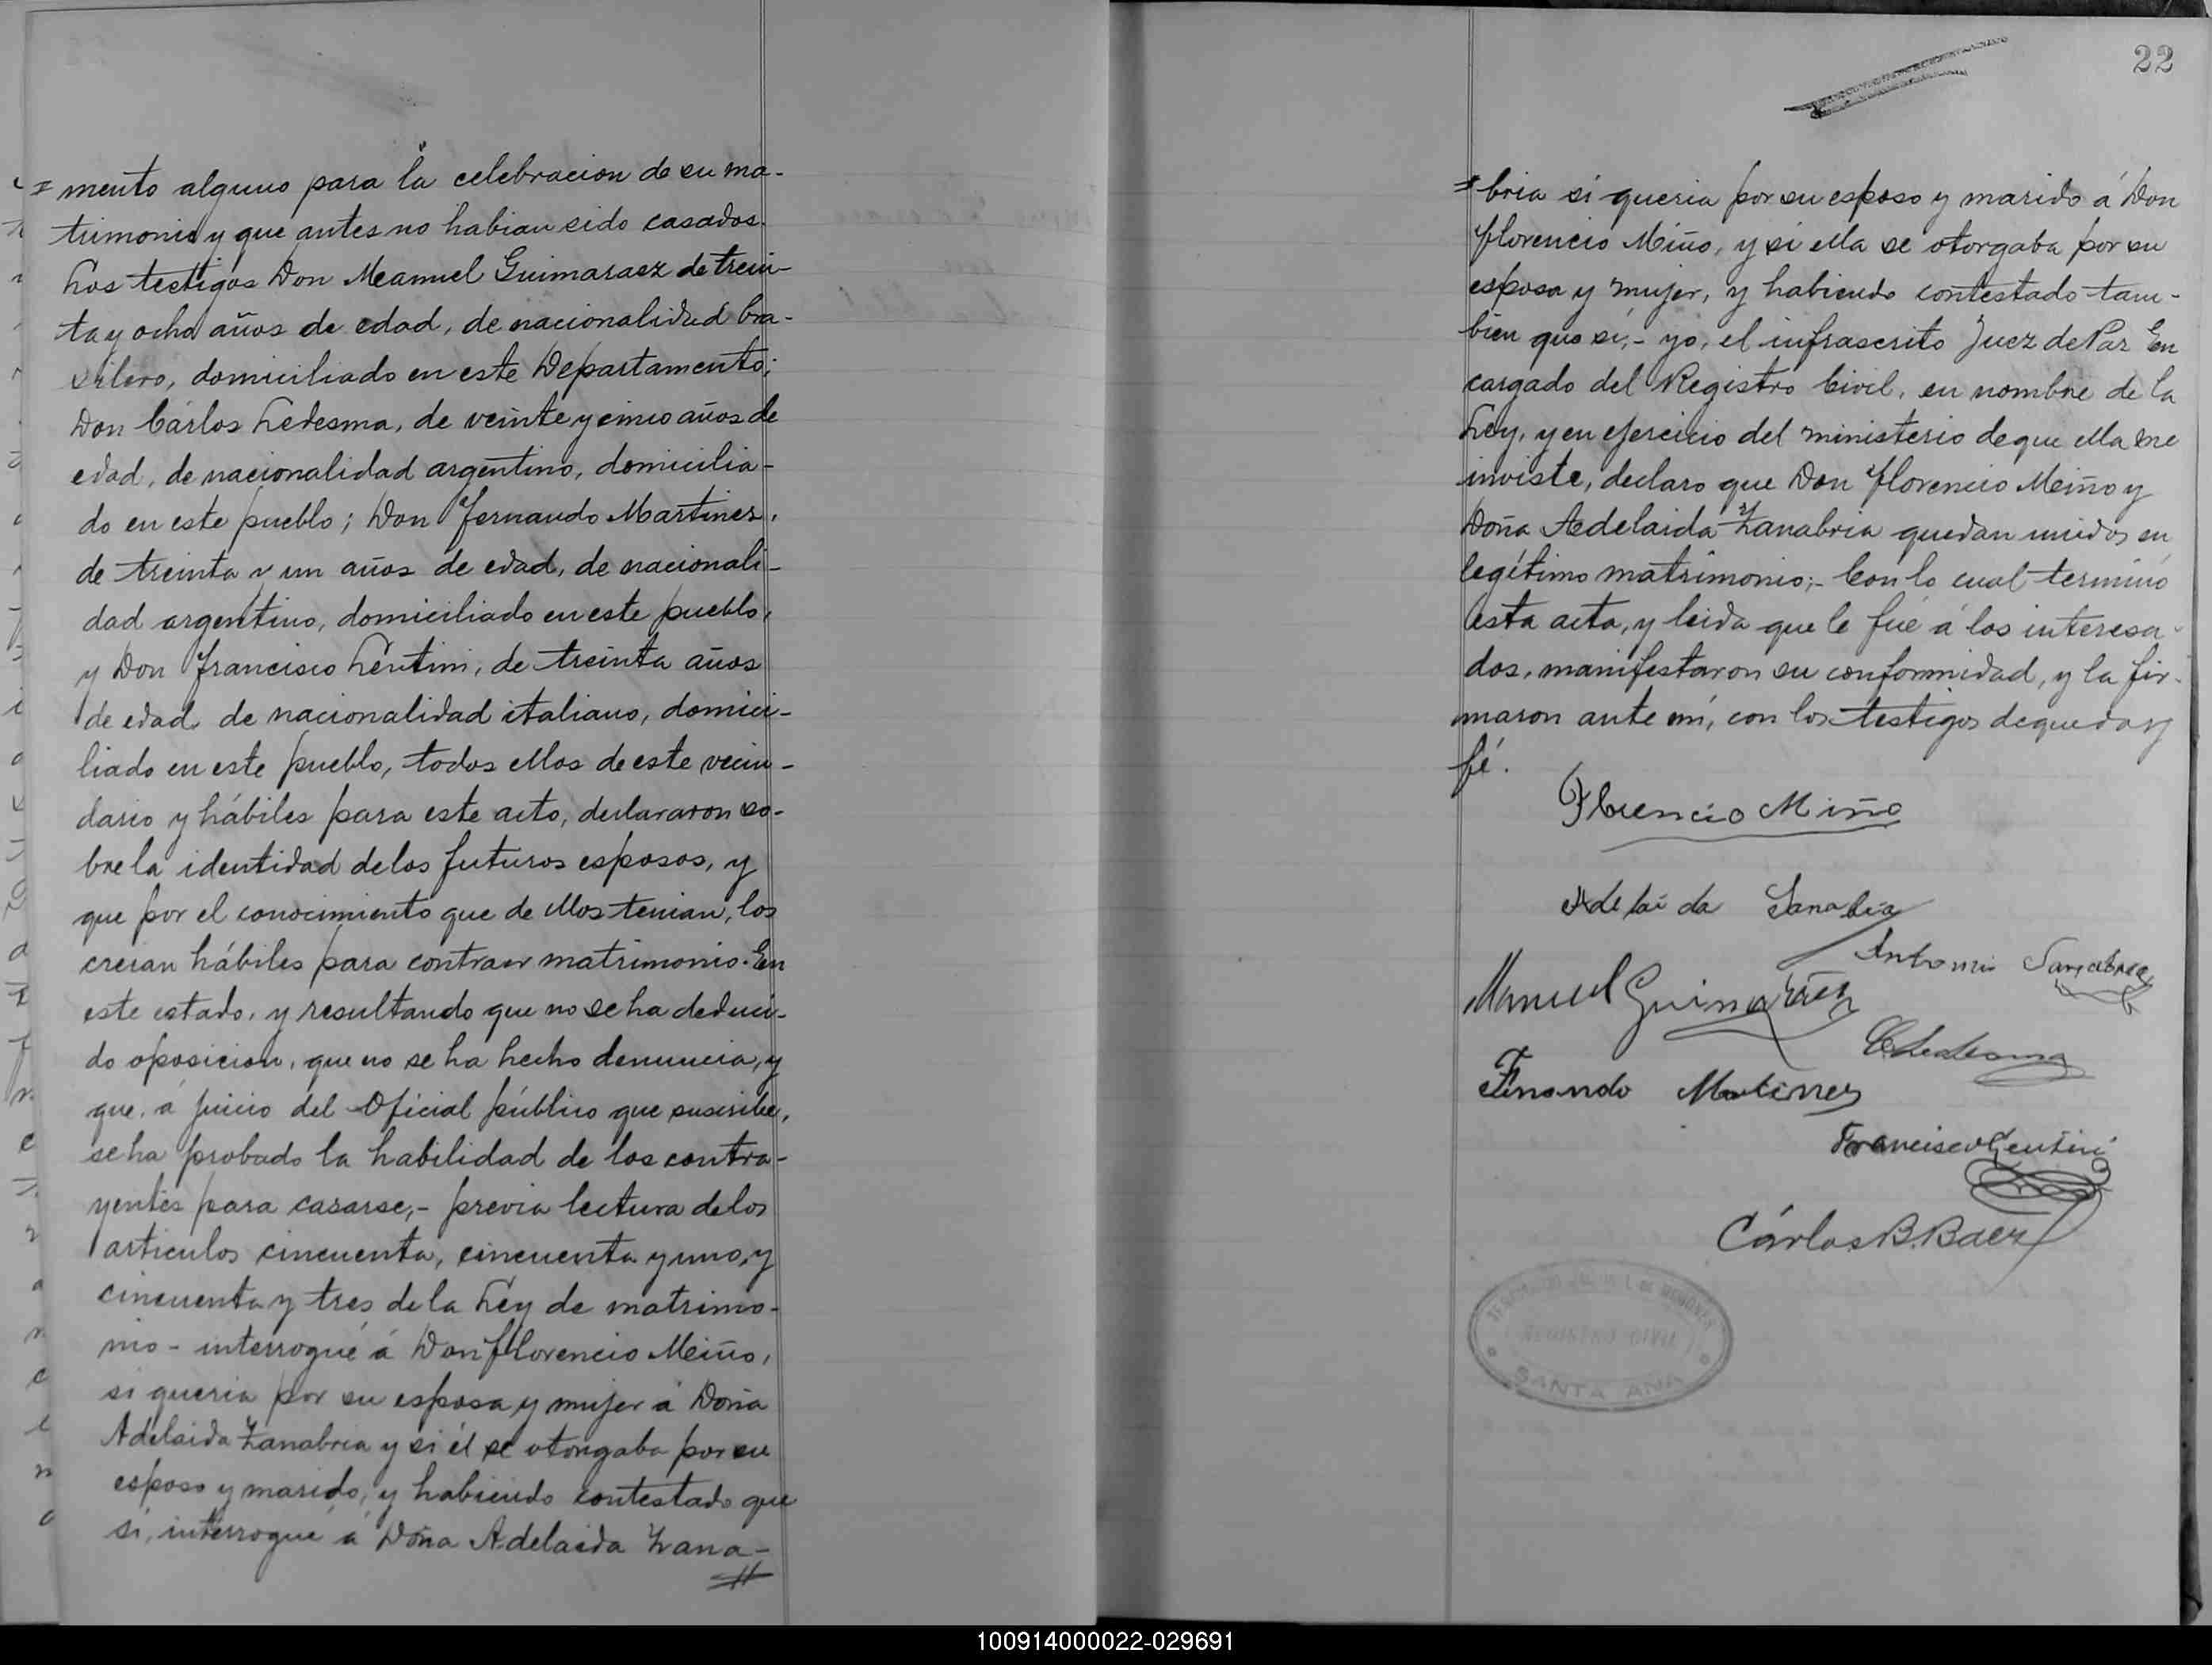 mento alguno para la celebracion de su ma-
trimonio y que antes no habian sido casados.
Los testigos Don Manuel Guimaraez de trein-
ta y ocho años de edad, de nacionalidad bra-
silero, domiciliado en este Departamento;
Don Cárlos Ledesma, de veinte y cinco años de
edad, de nacionalidad argentino, domicilia-
do en este pueblo; Don Fernando Martinez,
de treinta y un años de edad, de nacionali-
dad argentino, domiciliado en este pueblo,
y Don Francisco Lentini, de treinta años
de edad de nacionalidad italiano, domici-
liado en este pueblo, todos ellos de este vecin-
dario y hábiles para este acto, declararon so-
bre la identidad de los futuros esposos, y
que por el conocimiento que de ellos tenian, los
creian hábiles para contraer matrimonio. En
este estado, y resultando que no se ha deduci-
do oposicion, que no se ha hecho denuncia, y
que, á juicio del Oficial público que suscribe,
se ha probado la habilidad de los contra-
yentes para casarse,- previa lectura de los
articulos cincuenta, cincuenta y uno, y
cincuenta y tres de la Ley de matrimo-
nio - interrogué á Don Florencio Miño,
si queria por su esposa y mujer á Doña
Adelaida Zanabria y si él se otorgaba por su
esposo y marido, y habiendo contestado que
si, interrogué á Doña Adelaida Zana-
22
bria si queria por su esposo y marido á Don
Florencio Miño, y si ella se otorgaba por su
esposa y mujer, y habiendo contestado tam-
bien que si,- yo, el infrascrito Juez de Paz En
cargado del Registro Civil, en nombre de la
Ley, y en ejercicio del ministerio de que ella me
inviste, declaro que Don Florencio Miño y
Doña Adelaida Zanabria quedan unidos en
legítimo matrimonio;- Con lo cual terminó
esta acta, y leida que le fué á los interesa-
dos, manifestaron su conformidad, y la fir-
maron ante mí, con los testigos de que doy
fé.
Florencio Miño
Adelaida Sanabria
Antonio
Manuel Guimaraez
CLedesma
Fernando Martinez
Francisco Lentini
Cárlos B. Baez
REGISTRO CIVIL
SANTA ANA
100914000022-029691